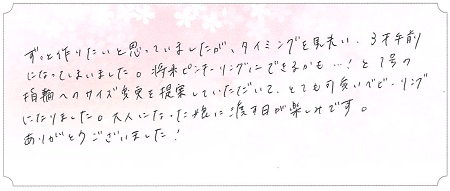 ずっと作りたいと思っていましたが、タイミングを見失い、3才手前
になってしまいました。将来ピンキーリングにできるかも…！と1号の
指輪へのサイズ変更を提案していただいて、とても可愛いベビーリング
になりました。大人になった娘に渡す日が楽しみです。
ありがとうございました！